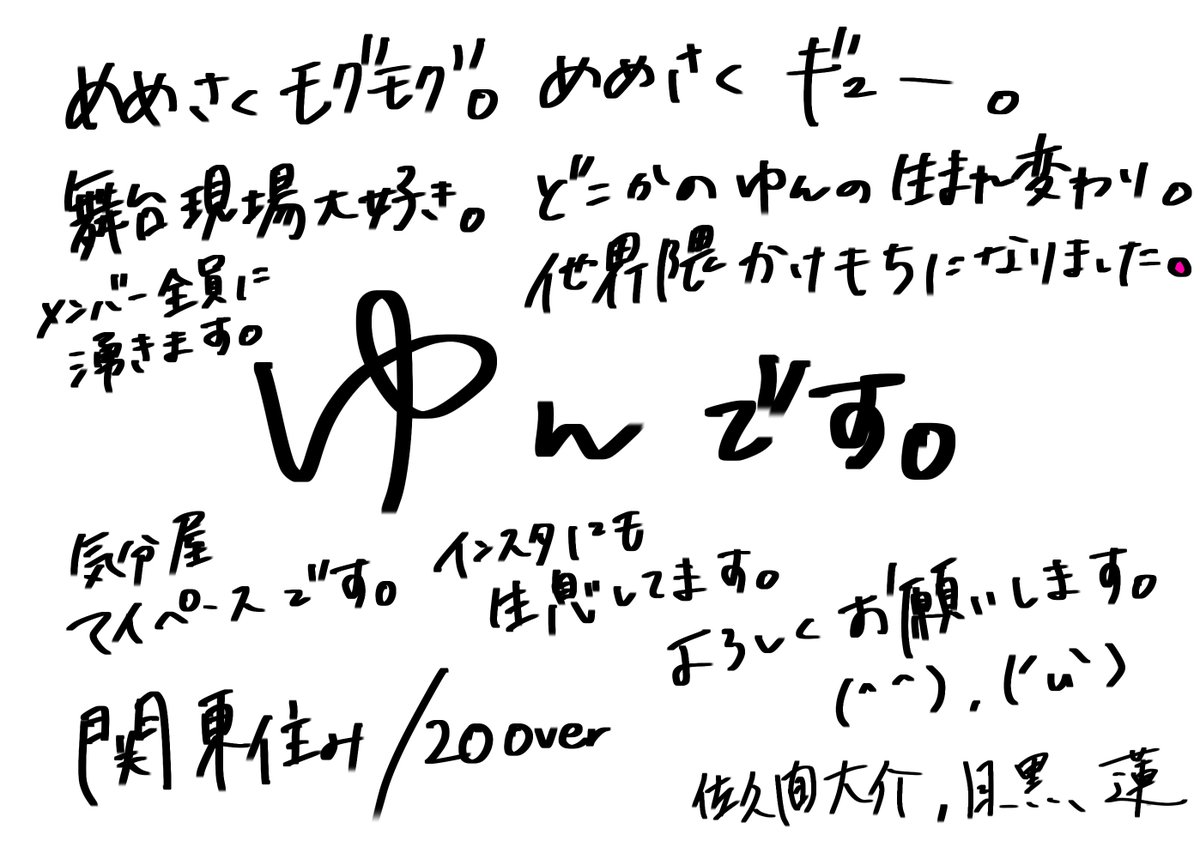 めめさくモグモグ。めめさくギュー。
舞台現場大好き。
どこかのゆんの生まれ変わり。
他界隈かけもちになりました。
メンバー全員に
湧きます。
ゆんです。
気分屋
マイペースです。
インスタにも
生息してます。
よろしくお願いします。
(^^),(´u`)
関東住み/20over
佐久間大介,目黒蓮